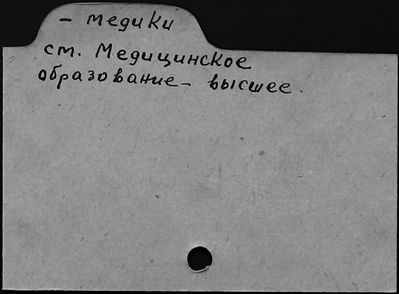 - медики
см. Медицинское
образование - высшее.